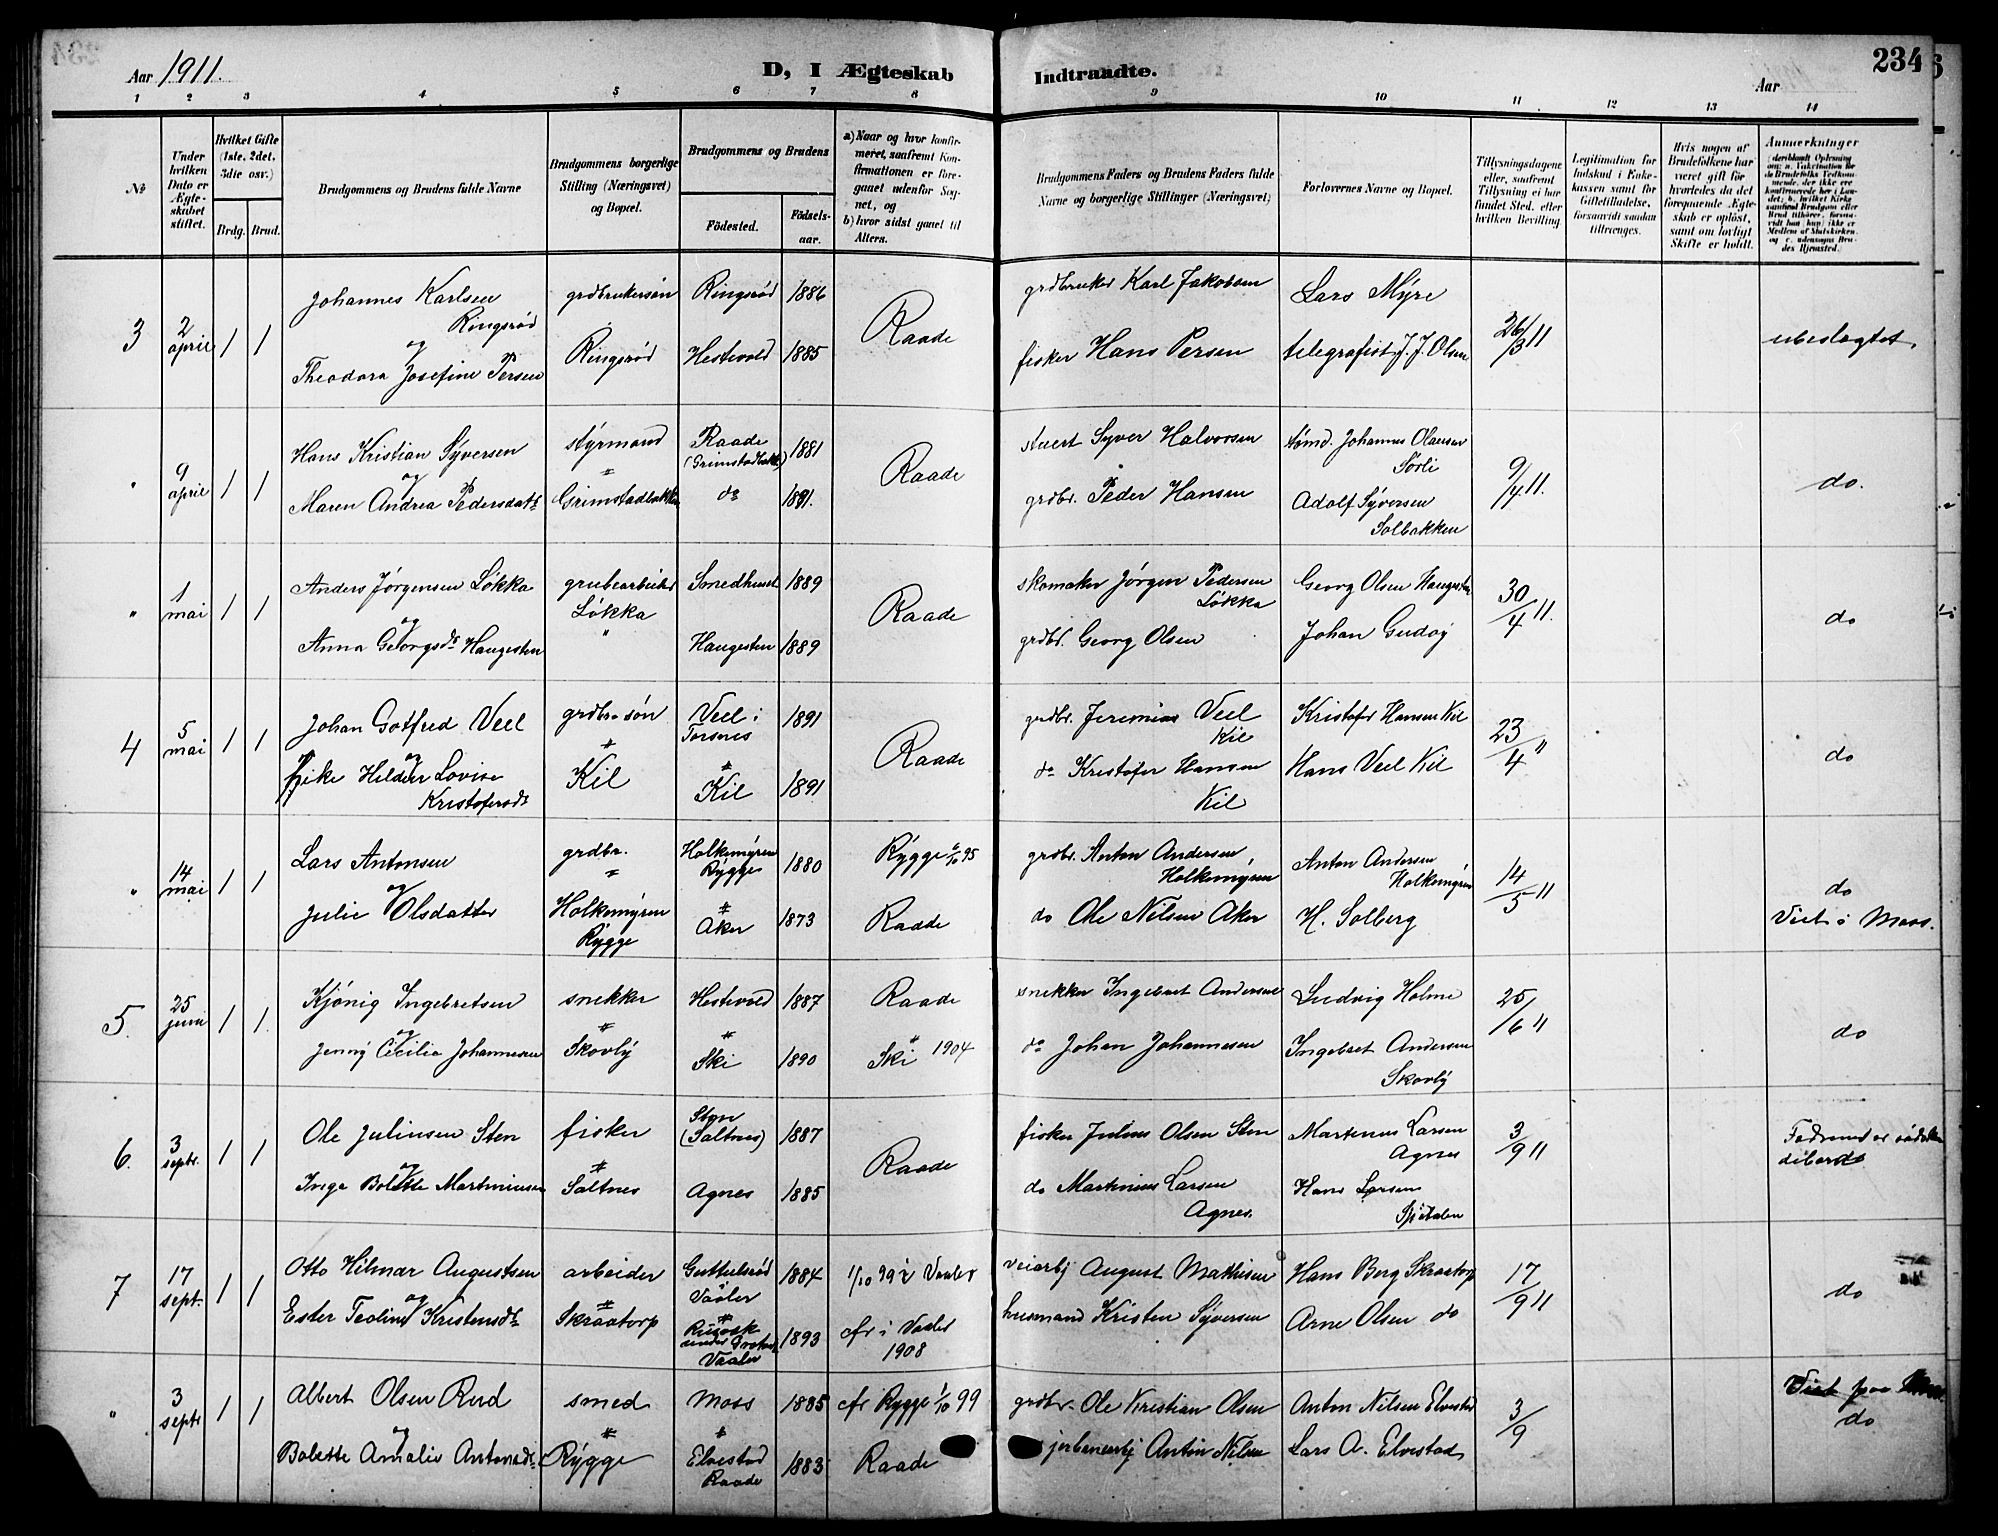 Aar 1911.
D, I Ægteskab Indtraadte.
Aar
234
1 2 3 4 5 6 7 8 9 10 11 12 13 14
No
Under hvilken Dato er Ægteskabet stiftet.
Hvilket Gifte (1ste, 2det, 3die osv.)
Brdg. Brud.
Brudgommens og Brudens fulde Navne
Brudgommens borgerlige Stilling (Næringsvei) og Bopæl.
Brudgommens og Brudens
Födested.
Födsels-aar.
a) Naar og hvor konfirmeret, saafremt Konfirmationen er foregaaet udenfor Sognet, og
b) hvor sidst gaaet til Alters.
Brudgommens Faders og Brudens Faders fulde Navne og borgerlige Stillinger (Næringsvei)
Forlovernes Navne og Bopæl.
Tillysningsdagene eller, saafremt Tillysning ei har fundet Sted, efter hvilken Bevilling.
Legitimation for Indskud i Enkekassen samt for Giftetilladelse, forsaavidt saadan tiltrænges.
Hvis nogen af Brudefolkene har været gift før hvorledes da det foregaaende Ægteskab er opløst, samt om lovligt Skifte er holdt.
Anmerkninger
3 2 april 1 1 Johannes Karlsen Ringsrød grdbrukersøn Ringsrød 1886 Raade grdbruker Karl Jakobsen Lars Myre 26/3 11 ubeslægtet.
og Theodora Josefine Persen Ringsrød Hestevold 1885 fisker Hans Persen telegrafist J. J. Olsen
" 9 april 1 1 Hans Kristian Syversen styrmand Raade (Grimstadbakk.) 1881 Raade stuert Syver Halvorsen tømd. Johannes Olausen Sørli 9/4 11. do.
og Maren Andrea Pedersdatr Grimstadbakken do 1891. grdbr. Peder Hansen Adolf Syversen Solbakken
" 1 mai 1 1 Anders Jørgensen Løkka grubearbeider Løkka Smedhuset 1889 Raade skomaker Jørgen Pedersen Løkka Georg Olsen Haugesten 30/4 11. do
og Anna Georgsdr Haugesten " Haugesten 1889 grdbr. Georg Olsen Johan Gudøy
4 5 mai 1 1 Johan Gotfred Veel grdbr. søn Veel i Torsnes 1891 Raade grdbr. Jeremias Veel Kil Kristofer Hansen Kil 23/4 " do
og Hilder Lovise Kristofersdr Kil Kil 1891 do Kristofer Hansen Kil Hans Veel Kil
" 14 mai 1 1 Lars Antonsen grdbr. Holkemyren Rygge 1880 Rygge 6/10 95 grdbr. Anton Andersen Holkemyren Anton Andersen Holkemyren 14/5 11 do
og Julie Olsdatter Holkemyren Rygge Aker 1873 Raade do Ole Nilsen Aker H. Solberg Viet i Moss.
5. 25 juni 1 1. Kjønig Ingebretsen snekker Hestevold 1887 Raade snekker Ingebret Andersen Ludvig Holme 25/6 11 do
og Jenny Cecilia Johannesen Skovly Ski 1890 Ski 1904 do Johan Johannesen Ingebret Andersen Skovly
6. 3 septr. 1 1 Ole Juliussen Sten fisker Sten (Saltnes) 1887 Raade fisker Julius Olsen Sten Martinius Larsen Agnes 3/9 11
og Inga Bolette Martiniusen Saltnes Agnes 1885 do Martinius Larsen Agnes. Hans Larsen Spitalen
7 17 sept. 1 1 Otto Hilmar Augustsen arbeider Guttulsrød Vaaler 1884 1/10 99 i Vaaler veiarbj August Mathisen Hans Berg Skraatorp 17/9 11 do
og Ester Teoline Kristensdr Skraatorp Vaaler 1893 cfr i Vaaler 1908 husmand Kristen Syversen Arne Olsen do
" 3 septr 1 1 Albert Olsen Rud smed Moss 1885 cfr Rygge 1/10 99 grdbr. Ole Kristian Olsen Anton Nilsen Elvestad 3/9 do
og Bolette Amalie Antonsdr. Rygge Elvestad Raade 1883 Raade jerbanearbj Anton Nilsen Lars A. Elvestad